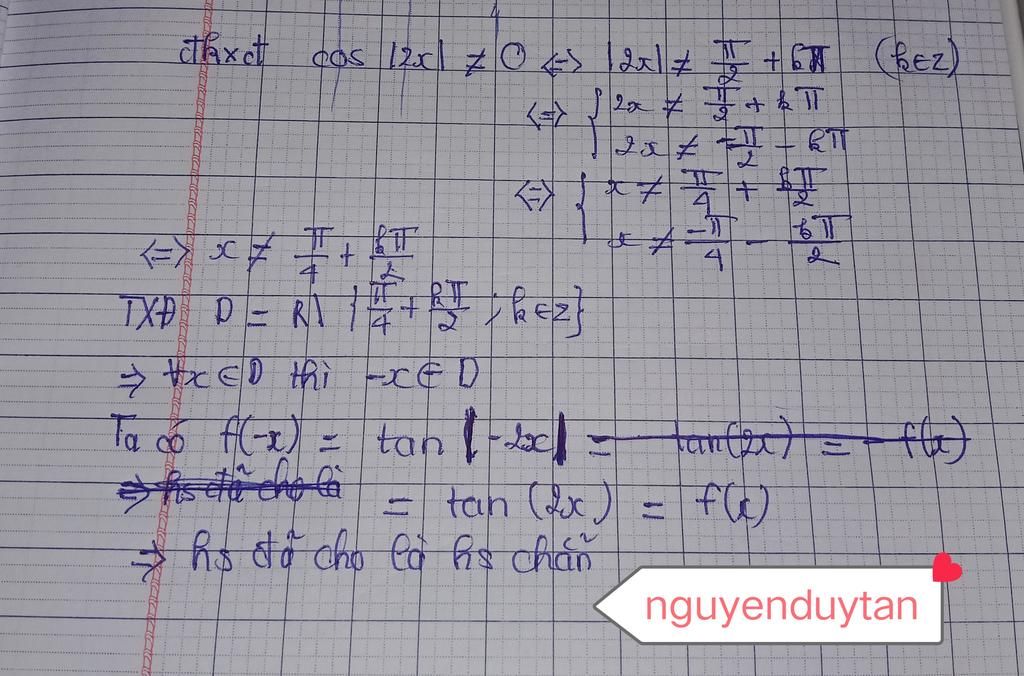 đkxđ cos |2x| ≠ 0 <=> |2x| ≠ π/2 + kπ (k∈Z)
<=> { 2x ≠ π/2 + kπ
2x ≠ -π/2 - kπ
<=> { x ≠ π/4 + kπ/2
x ≠ -π/4 - kπ/2
<=> x ≠ π/4 + kπ/2
TXĐ D = R\ {π/4 + kπ/2 ; k∈Z}
=> ∀x∈D thì -x∈D
Ta có f(-x) = tan |-2x| = tan(2x) = - f(x)
=> hs đã cho là
= tan (2x) = f(x)
=> hs đã cho là hs chẵn
nguyenduytan